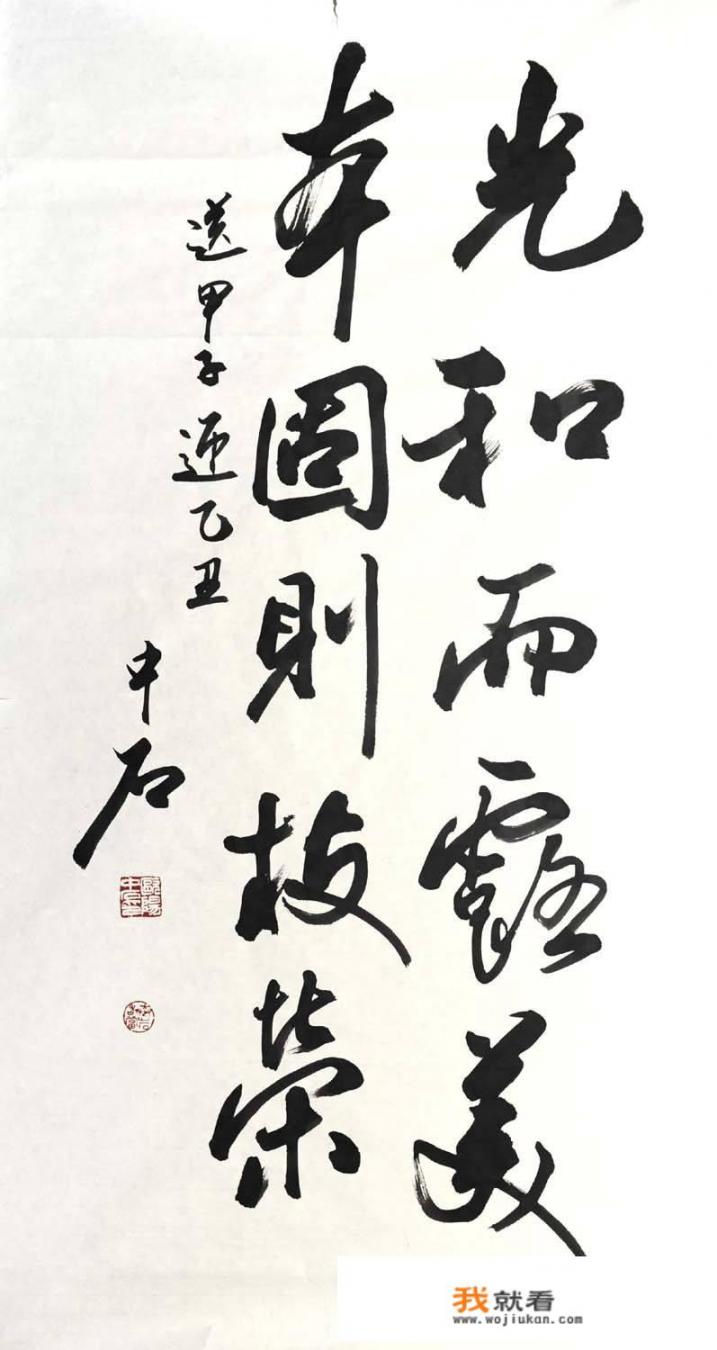 光和而露美
本固則枝榮
送甲子迎乙丑
中石
歐陽中石
我就看
www.wojiukan.com